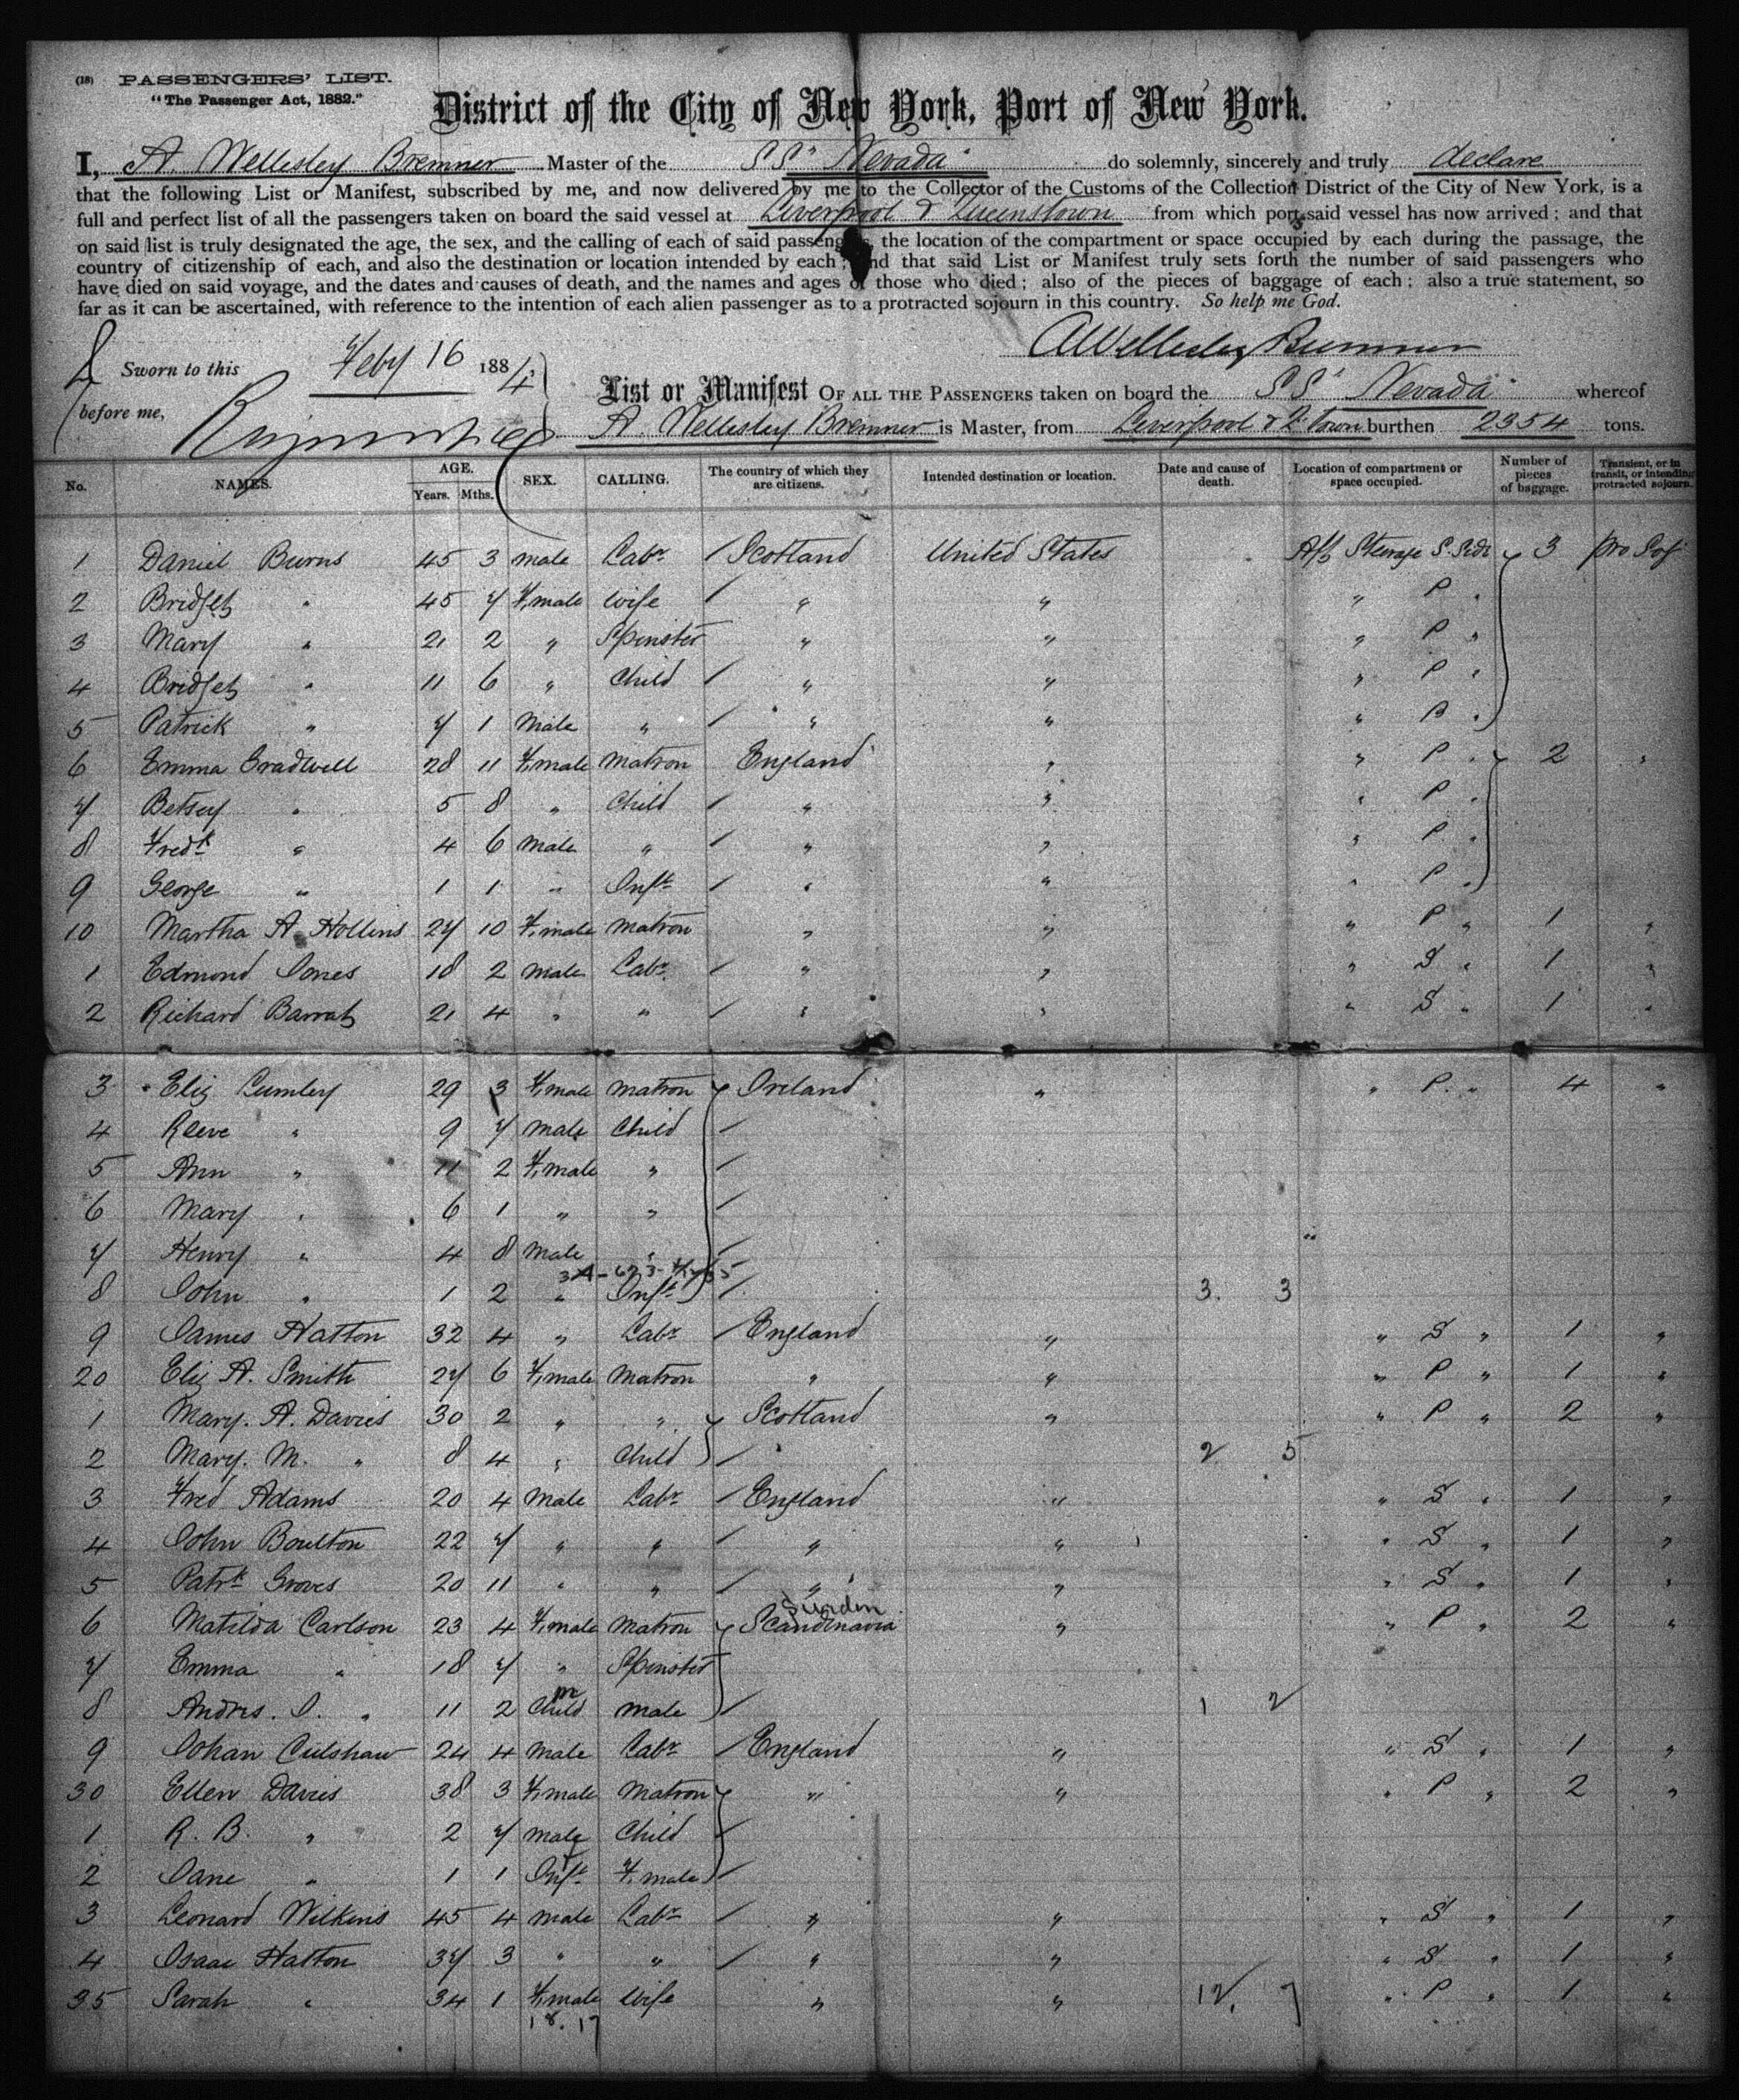 (18) PASSENGERS' LIST.
"The Passenger Act, 1882."
District of the City of New York, Port of New York.
I, A. Wellesley Bremner Master of the SS "Nevada" do solemnly, sincerely and truly declare
that the following List or Manifest, subscribed by me, and now delivered by me to the Collector of the Customs of the Collection District of the City of New York, is a
full and perfect list of all the passengers taken on board the said vessel at Liverpool & Queenstown from which port said vessel has now arrived; and that
on said list is truly designated the age, the sex, and the calling of each of said passengers, the location of the compartment or space occupied by each during the passage, the
country of citizenship of each, and also the destination or location intended by each; and that said List or Manifest truly sets forth the number of said passengers who
have died on said voyage, and the dates and causes of death, and the names and ages of those who died; also of the pieces of baggage of each; also a true statement, so
far as it can be ascertained, with reference to the intention of each alien passenger as to a protracted sojourn in this country. So help me God.
AWellesley Bremner
Sworn to this Feby 16 1884,
before me,
List or Manifest OF ALL THE PASSENGERS taken on board the SS "Nevada" whereof
A. Wellesley Bremner is Master, from Liverpool & Q.town burthen 2354 tons.
No. NAMES. AGE. Years. Mths. SEX. CALLING. The country of which they are citizens. Intended destination or location. Date and cause of death. Location of compartment or space occupied. Number of pieces of baggage. Transient, or in transit, or intending protracted sojourn.
1 Daniel Burns 45 3 male Labr / Scotland United States Aft Steerage S. Side 3 pro Soj
2 Bridget " 45 7 Female wife / " " " P "
3 Mary " 21 2 " Spinster " " " P "
4 Bridget " 11 6 " Child / " " " P "
5 Patrick " 7 1 Male " / " " " P "
6 Emma Gradwell 28 11 Female matron England " " P " 2 "
7 Betsey " 5 8 " Child / " " " P "
8 Fredk " 4 6 male " / " " " P "
9 George " 1 1 " Inft / " " " P "
10 Martha A Hollins 27 10 Female matron " " " P " 1 "
1 Edmond Jones 18 2 male Labr / " " " S " 1 "
2 Richard Barratt 21 4 " " / " " " S " 1 "
3 Eliz Lumley 29 3 Female matron Ireland " " P " 4 "
4 Reeve " 9 7 male Child /
5 Ann " 11 2 Female " /
6 Mary " 6 1 " " /
7 Henry " 4 8 male " /
8 John " 1 2 " Inft / 3. 3
9 James Hatton 32 4 " Labr / England " " S " 1 "
20 Eliz A. Smith 27 6 Female Matron " " " P " 1 "
1 Mary. A. Davies 30 2 " " Scotland " " P " 2 "
2 Mary. M. " 8 4 " Child / 2 5
3 Fred Adams 20 4 Male Labr / England " " S " 1 "
4 John Boulton 22 7 " " / " " " S " 1 "
5 Patrk Groves 20 11 " " / " " " S " 1 "
Sweden
6 Matilda Carlson 23 4 Female Matron Scandinavia " " P " 2 "
7 Emma " 18 7 " Spinster
m
8 Andrs. J. " 11 2 Child male / 1 2
9 Johan Culshaw 24 4 male Labr / England " " S " 1 "
30 Ellen Davies 38 3 Female Matron " " " P " 2 "
1 R. B. " 2 7 male Child /
2 Jane " 1 1 Inft Female /
3 Leonard Wilkins 45 4 male Labr / " " " S " 1 "
4 Isaac Hatton 37 3 " " / " " " S " 1 "
35 Sarah " 34 1 Female wife " " 12, 7 " P " 1 "
18. 17